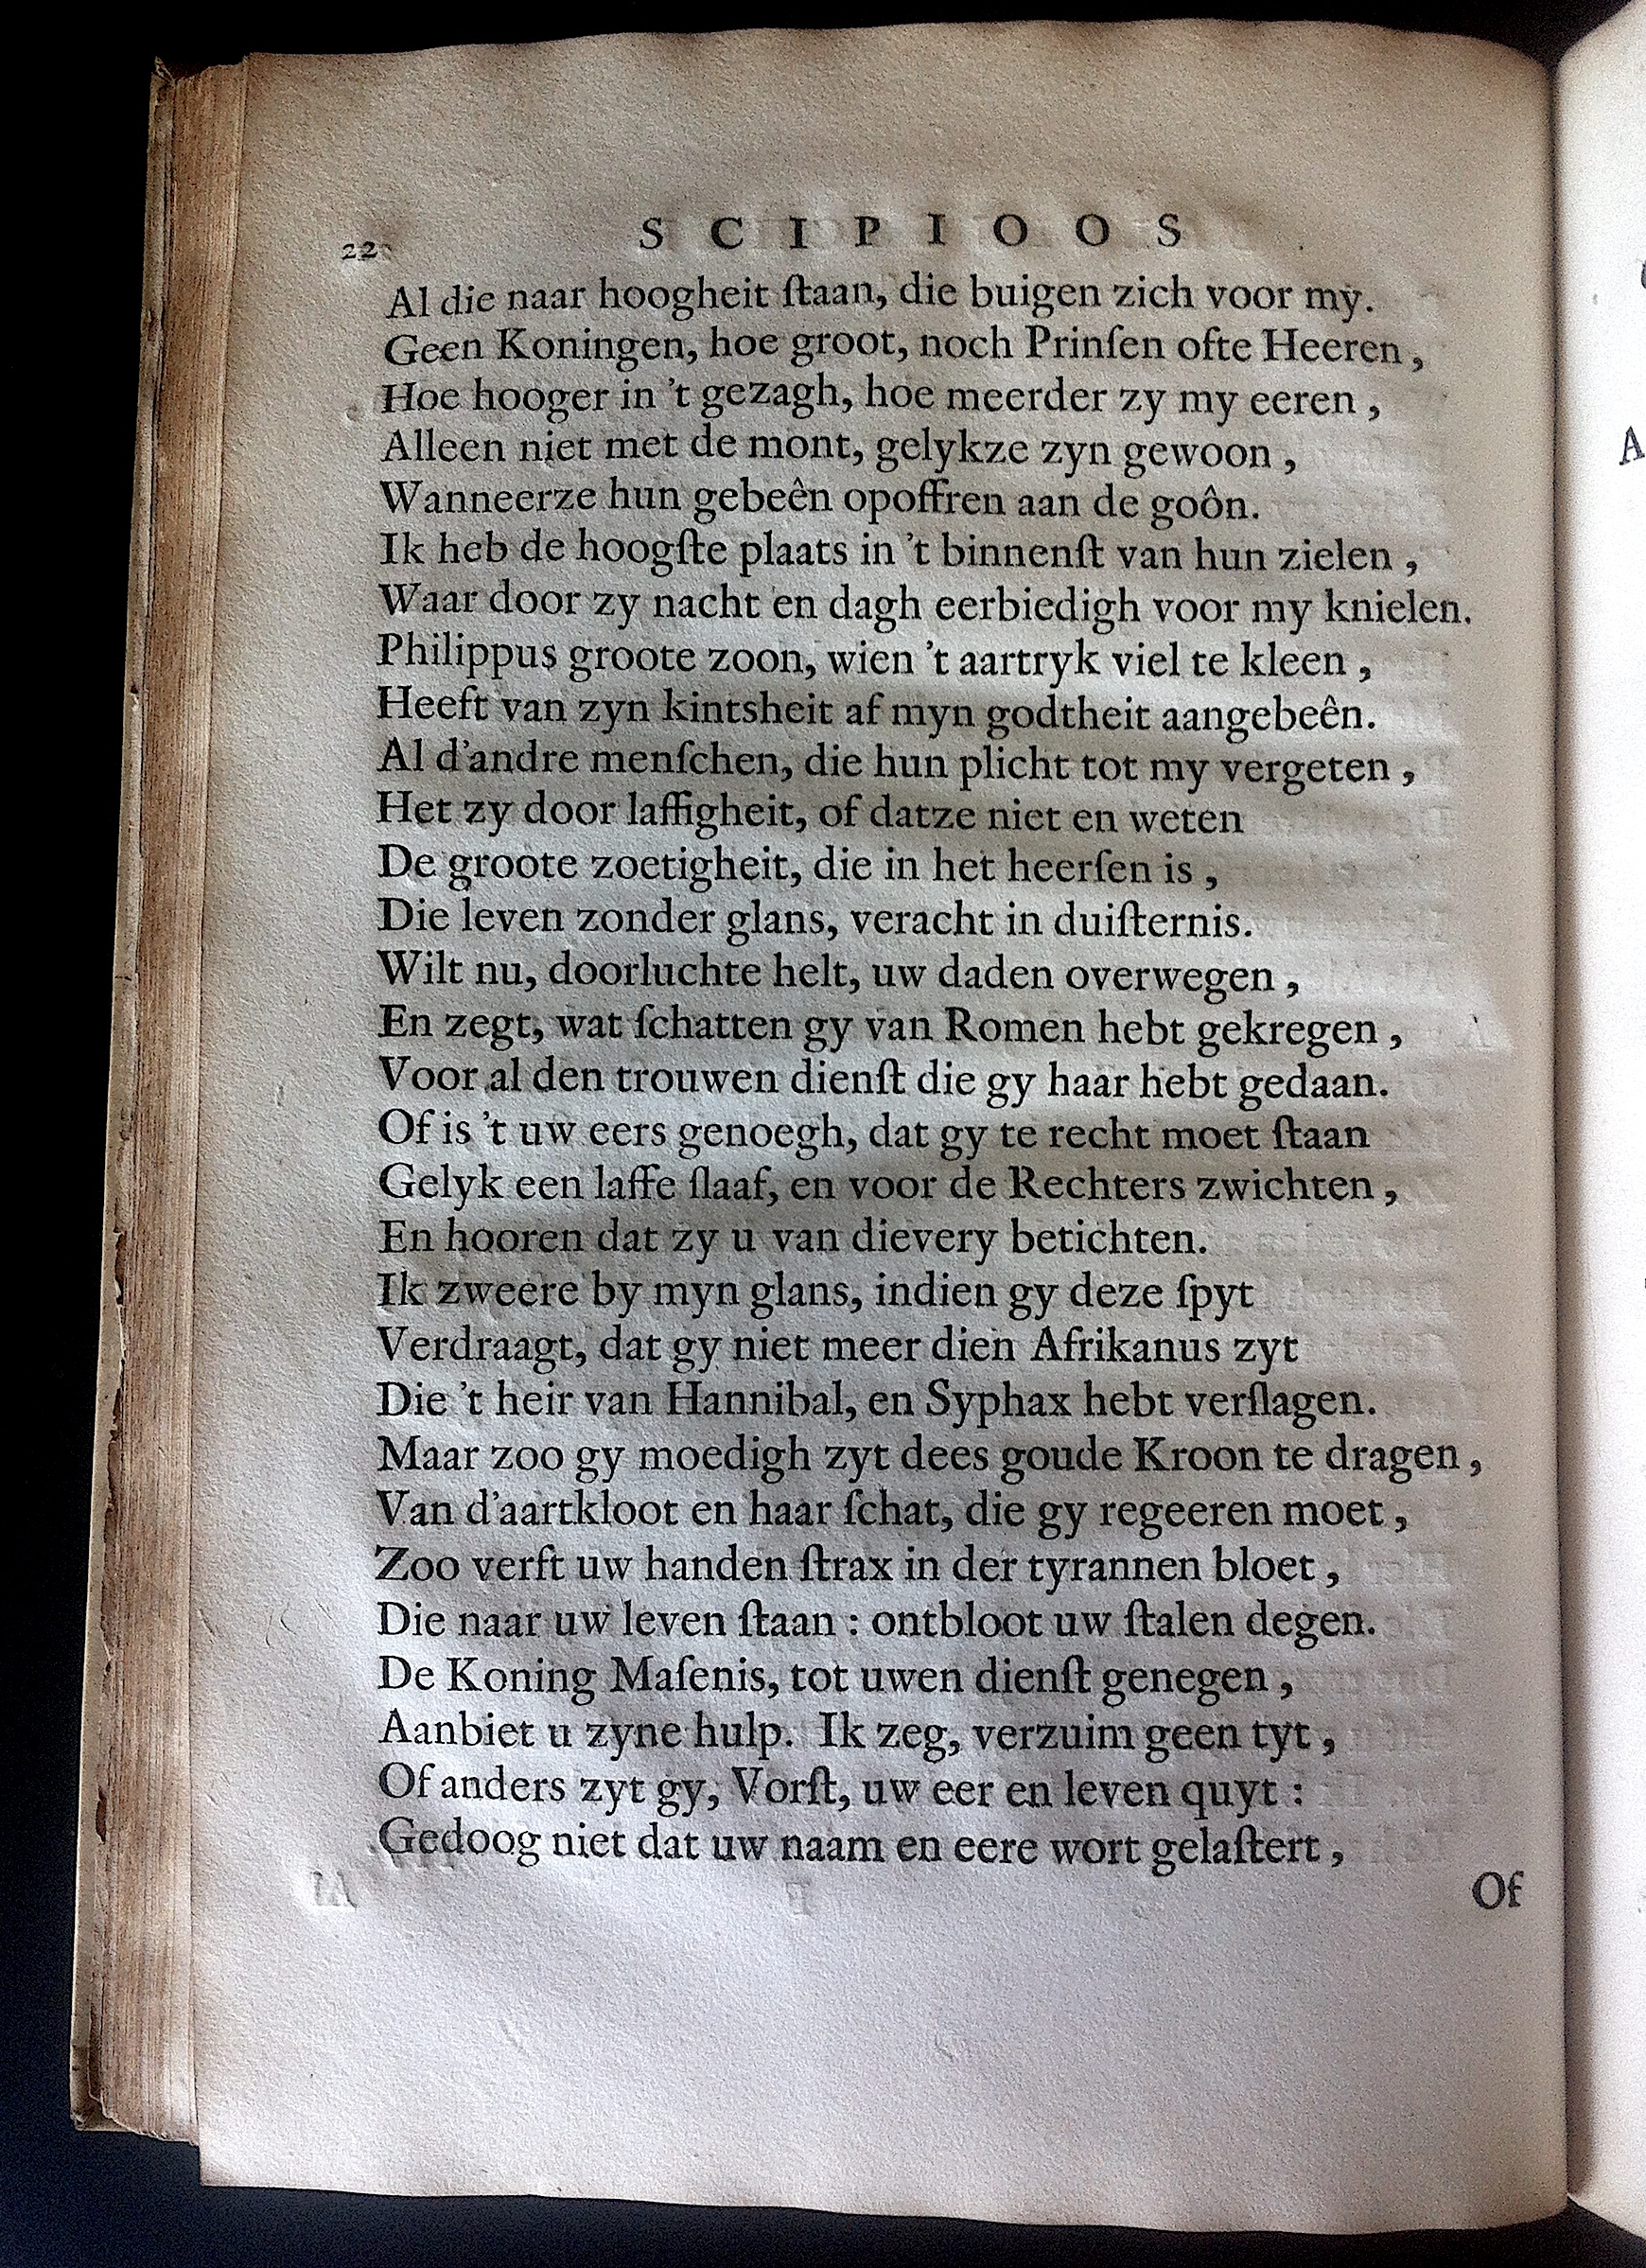 22 SCIPIOOS
Al die naar hoogheit ſtaan, die buigen zich voor my.
Geen Koningen, hoe groot, noch Prinſen ofte Heeren,
Hoe hooger in 't gezagh, hoe meerder zy my eeren,
Alleen niet met de mont, gelykze zyn gewoon,
Wanneerze hun gebeên opoffren aan de goôn.
Ik heb de hoogſte plaats in 't binnenſt van hun zielen,
Waar door zy nacht en dagh eerbiedigh voor my knielen.
Philippus groote zoon, wien 't aartryk viel te kleen,
Heeft van zyn kintsheit af myn godtheit aangebeên.
Al d'andre menſchen, die hun plicht tot my vergeten,
Het zy door laffigheit, of datze niet en weten
De groote zoetigheit, die in het heerſen is,
Die leven zonder glans, veracht in duiſternis.
Wilt nu, doorluchte helt, uw daden overwegen,
En zegt, wat ſchatten gy van Romen hebt gekregen,
Voor al den trouwen dienſt die gy haar hebt gedaan.
Of is 't uw eers genoegh, dat gy te recht moet ſtaan
Gelyk een laffe ſlaaf, en voor de Rechters zwichten,
En hooren dat zy u van dievery betichten.
Ik zweere by myn glans, indien gy deze ſpyt
Verdraagt, dat gy niet meer dien Afrikanus zyt
Die 't heir van Hannibal, en Syphax hebt verſlagen.
Maar zoo gy moedigh zyt dees goude Kroon te dragen,
Van d'aartkloot en haar ſchat, die gy regeeren moet,
Zoo verft uw handen ſtrax in der tyrannen bloet,
Die naar uw leven ſtaan : ontbloot uw ſtalen degen.
De Koning Maſenis, tot uwen dienſt genegen,
Aanbiet u zyne hulp. Ik zeg, verzuim geen tyt,
Of anders zyt gy, Vorſt, uw eer en leven quyt :
Gedoog niet dat uw naam en eere wort gelaſtert,
Of
A